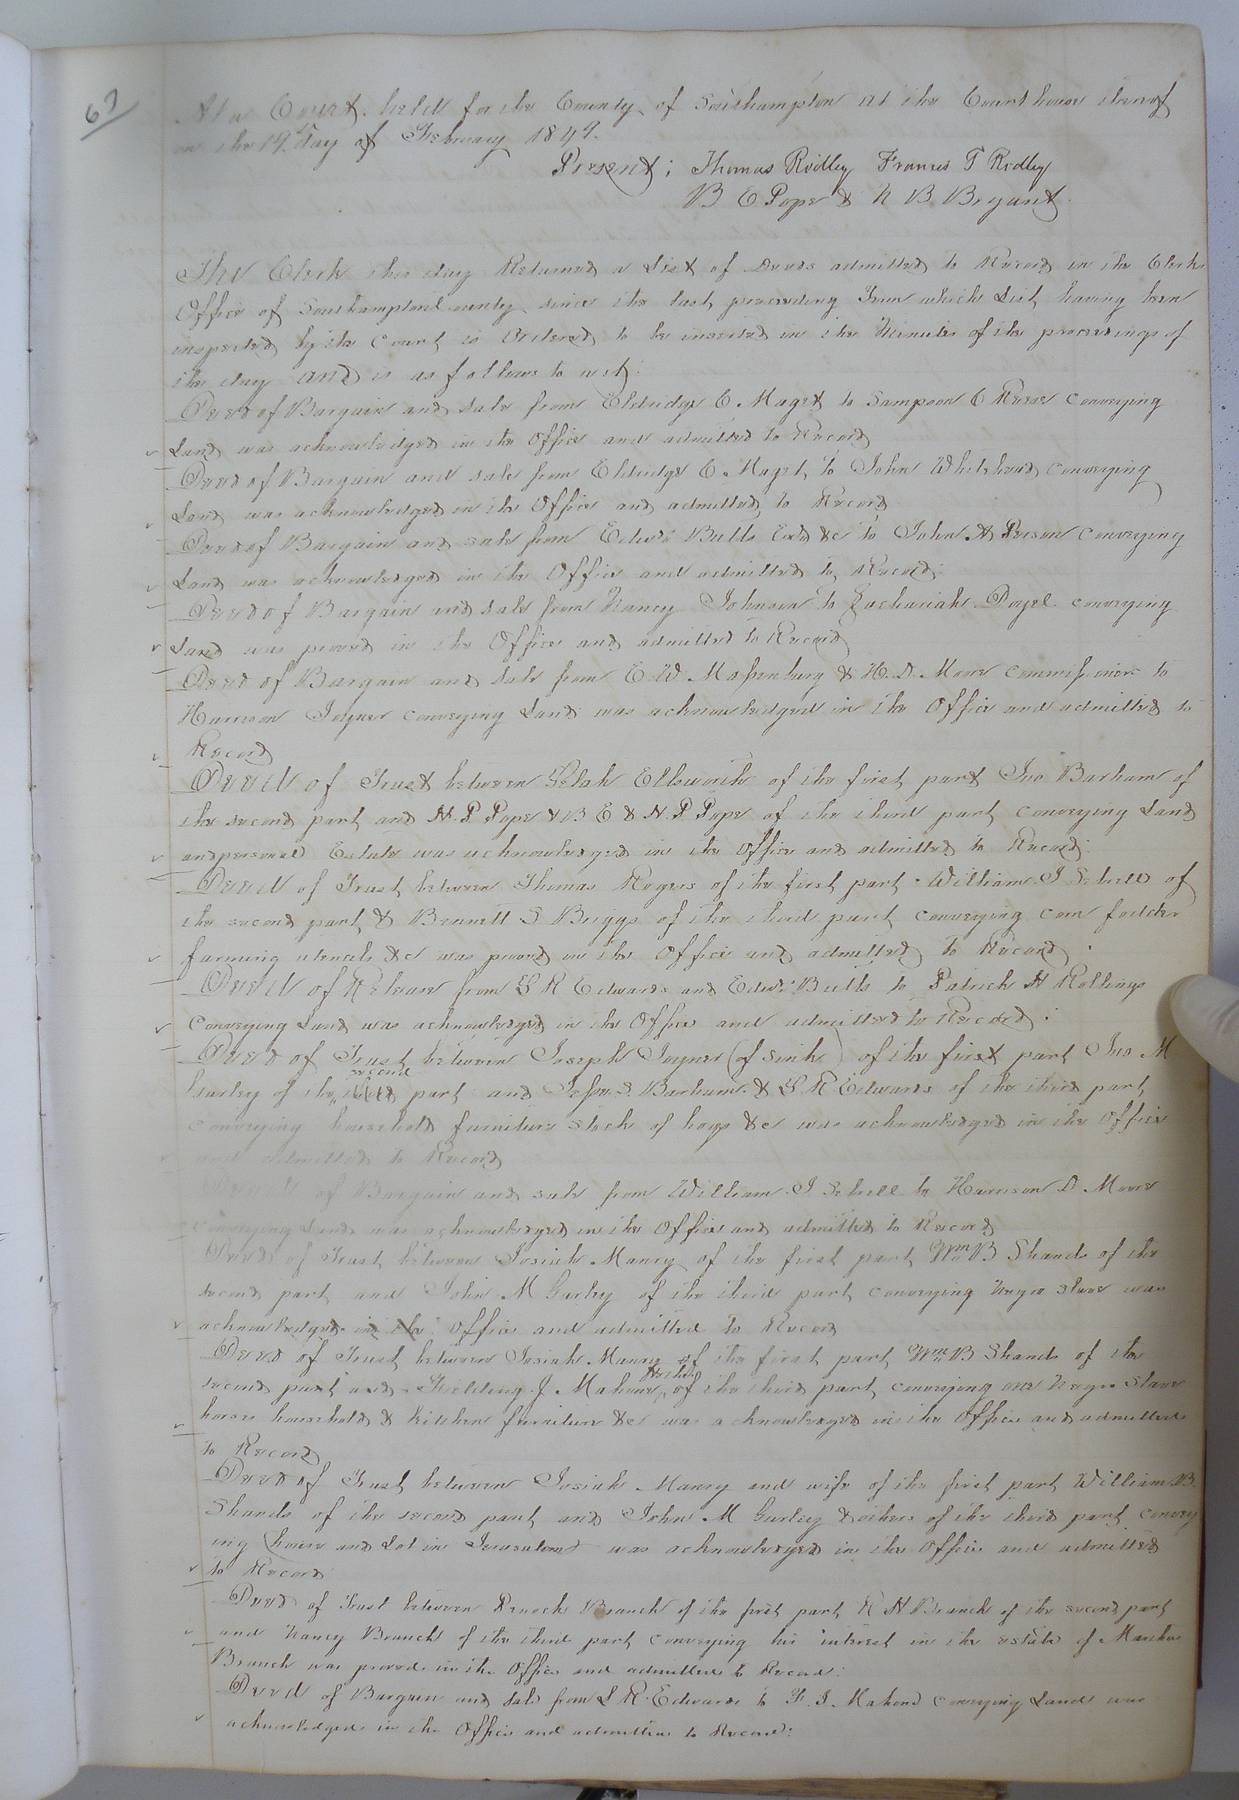 67
At a Court held for the County of Southampton at the Courthouse thereof
on the 19th day of February 1849.
Present; Thomas Ridley Francis T Ridley
B E Pope & N B Bryant
The Clerk this day Returned a List of Deeds admitted to Record in the Clerks
Office of Southampton County since the last preceeding Term which List having been
inspected by the Court is Ordered to be inserted in the Minutes of the proceedings of
the day and is as follows to wit:
Deed of Bargain and Sale from Eldridge C. Maget to Sampson C Reese conveying
Land was acknowledged in the Office and admitted to Record
Deed of Bargain and sale from Eldridge C. Maget to John Whitehead conveying
Land was acknowledged in the Office and admitted to Record
Deed of Bargain and sale from Edwd. Butts &c to John A Person conveying
Land was acknowledged in the Office and admitted to Record:
Deed of Bargain and Sale from Nancy Johnson to Zachariah Doyel conveying
Land was proved in the Office and admitted to Record
Deed of Bargain and Sale from E. W. Massenburg & H. D. Moore commissioners to
Harrison Joyner conveying Land was acknowledged in the Office and admitted to
Record
Deed of Trust between Selah Ellsworth of the first part Jno Barham of
the second part and H. P. Pope & B E & H. P. Pope of the third part conveying Land
and personal Estate was acknowledged in the Office and admitted to Record:
Deed of Trust between Thomas Rogers of the first part William J Sebrell of
the second part & Bennett S Briggs of the third part conveying corn fodder
farming utencels &c was proved in the Office and admitted to Record:
Deed of Release from L R Edwards and Edwd. Butts to Patrick H Rollings
conveying Land was acknowledged in the Office and admitted to Record:
Deed of Trust between Joseph Joyner (of Smith) of the first part Jno M
second
Gurley of the third part and Jesse S. Barham & L R Edwards of the third part
conveying household furniture stock of hogs &c was acknowledged in the Office
and admitted to Record
Deed of Bargain and sale from William. J Sebrell to Harrison D Moore
conveying Land was acknowledged in the Office and admitted to Record
Deed of Trust between Josiah Maney of the first part Wm B Shands of the
second part and John M Gurley of the third part conveying Negro Slave was
acknowledged in the Office and admitted to Record
Deed of Trust between Josiah Maney of the first part Wm B Shands of the
second part and Fielding J Mahone of the third part conveying one Negro Slave
horses household & kitchen furniture &c was acknowledged in the Office and admitted
to Record
Deed of Trust between Josiah Maney and wife of the first part William B.
Shands of the second part and John M Gurley & others of the third part convey
ing house and Lot in Jerusalem was acknowledged in the Office and admitted
to Record
Deed of Trust between Branch of the first part R H Branch of the second part
and Nancy Branch of the third part conveying his interest in the estate of
Branch was proved in the Office and admitted to Record:
Deed of Bargain and Sale from L R. Edwards to F. J. Mahone conveying Land was
acknowledged in the Office and admitted to Record: